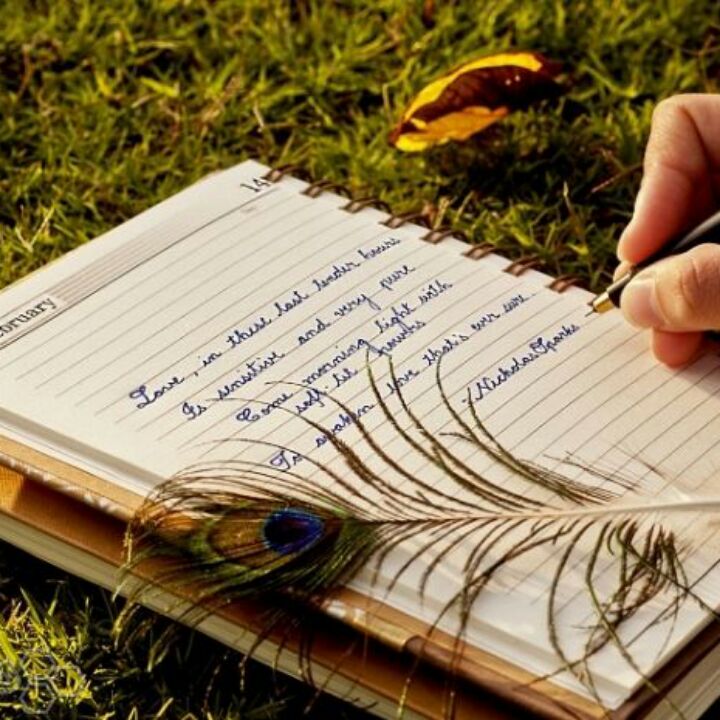 14
bruary
Love, in these last tender hours
Is sensitive and very pure
Come morning light with
soft-lit powers
To awaken love that's ever sure.
/Nicholas Sparks